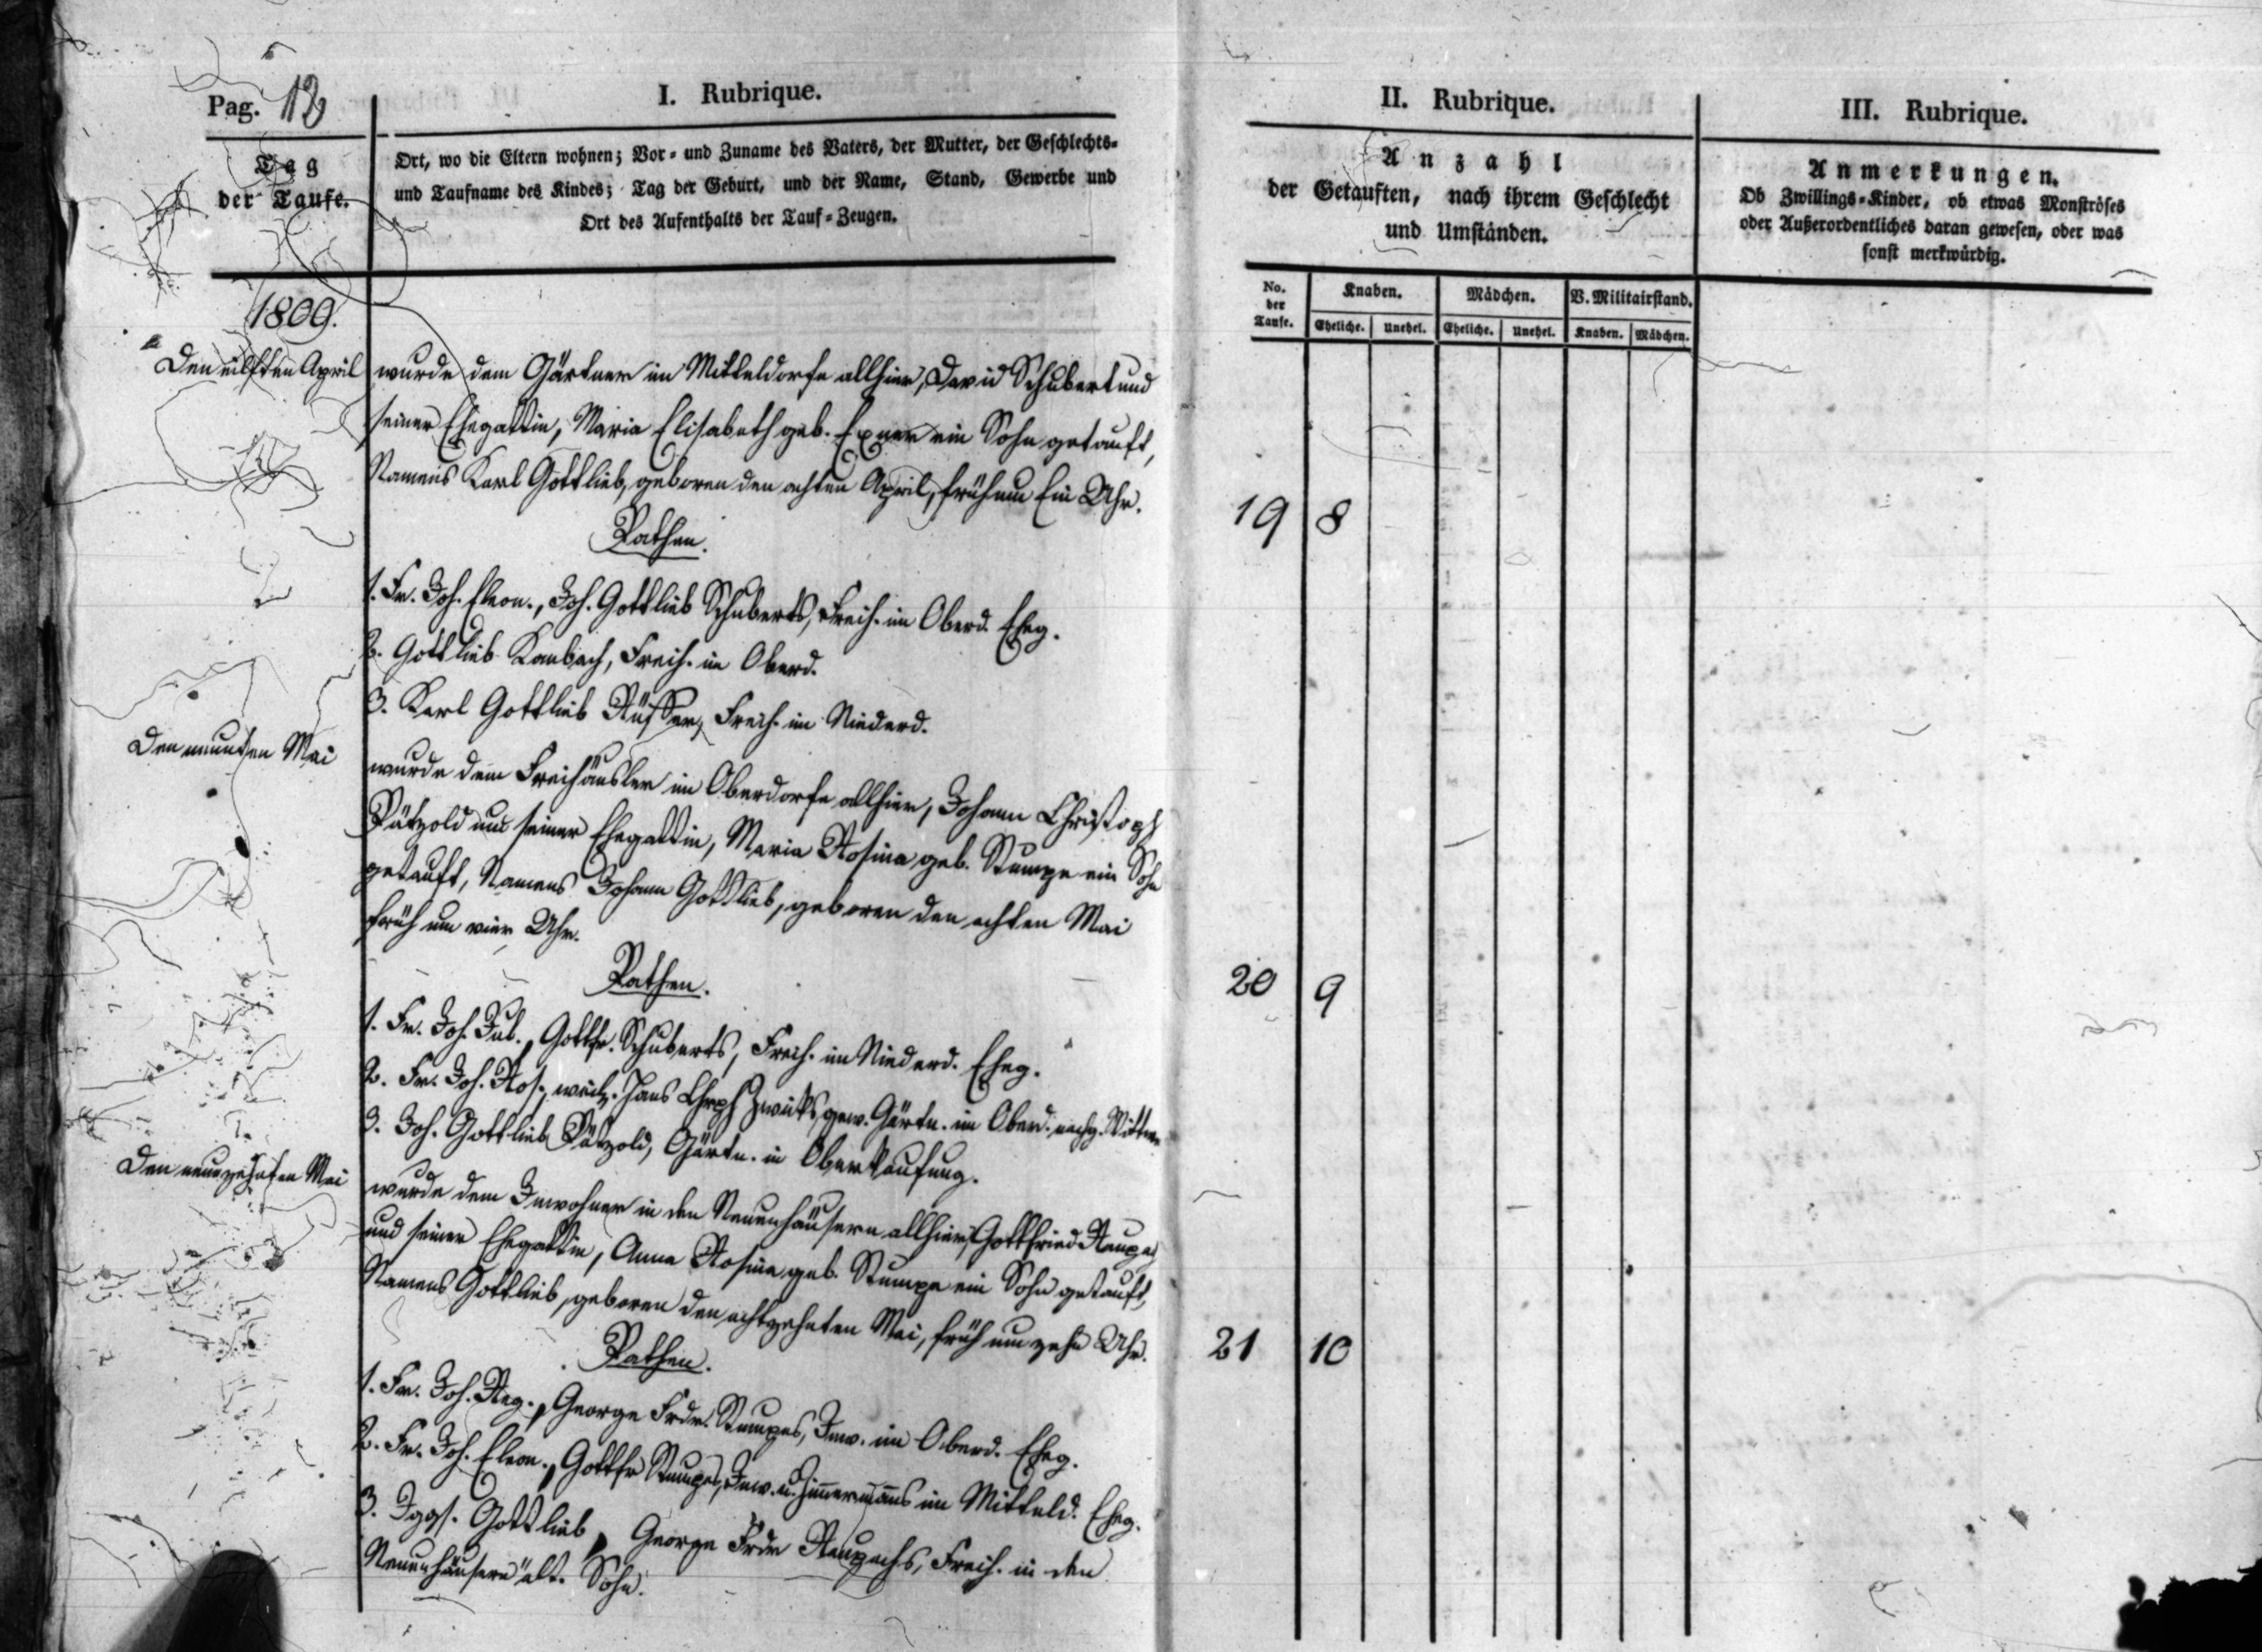 Pag. 12
I. Rubrique.
Tag
der Taufe.
Ort, wo die Eltern wohnen; Vor- und Zuname des Vaters, der Mutter, der Geschlechts-
und Taufname des Kindes; Tag der Geburt, und der Name, Stand, Gewerbe und
Ort des Aufenthalts der Tauf-Zeugen.
1809.
Den eilften April
wurde dem Gärtner im Mitteldorfe allhier, David Schubert und
seiner Ehegattin, Maria Elisabeth geb. Exner ein Sohn getauft,
Namens Karl Gottlieb, geboren den achten April, früh um Ein Uhr.
Pathen.
1. Fr. Joh. Eleon., Joh. Gottlieb Schuberts, Freih. im Oberd. Eheg.
2. Gottlieb Kambach, Freih. im Oberd.
3. Karl Gottlieb Freih. im Niederd.
Den neunten Mai
wurde dem Freihäusler im Oberdorfe allhier, Johann Christoph
Pätzold und seiner Ehegattin, Maria Rosina geb. Stumpe ein Sohn
getauft, Namens Johann Gottlieb, geboren den achten Mai
früh um vier Uhr.
Pathen.
1. Fr. Joh. Jul., Gottfr. Schuberts, Freih. im Niederd. Eheg.
2. Fr. Joh. Ros., weil. Hans Chrph gew. Gärtn. im Oberd. Wittwe
3. Joh. Gottlieb Pätzold, Gärtn. in Oberkaufung.
Den neunzehnten Mai
wurde dem Inwohner in den Neuenhäusern allhier, Gottfried Raupach
und seiner Ehegattin, Anna Rosina geb. Stumpe ein Sohn getauft,
Namens Gottlieb, geboren den achtzehnten Mai, früh um zehn Uhr.
Pathen.
1. Fr. Joh. Reg., George Frdr. Stumpes, Inw. im Oberd. Eheg.
2. Fr. Joh. Eleon., Gottfr Stumpes, Inw. u. Zimmermanns im Mitteld. Eheg.
3. Jggs. Gottlieb, George Frdr Raupachs, Freih. in den
Neuenhäusern ält. Sohn.
II. Rubrique.
Anzahl
der Getauften, nach ihrem Geschlecht
und Umständen.
No.
der
Taufe.
Knaben. Mädchen. V. Militairstand.
Eheliche. Unehel. Eheliche. Unehel. Knaben. Mädchen.
19 8
20 9
21 10
III. Rubrique.
Anmerkungen.
Ob Zwillings-Kinder, ob etwas Monströses
oder Außerordentliches daran gewesen, oder was
sonst merkwürdig.